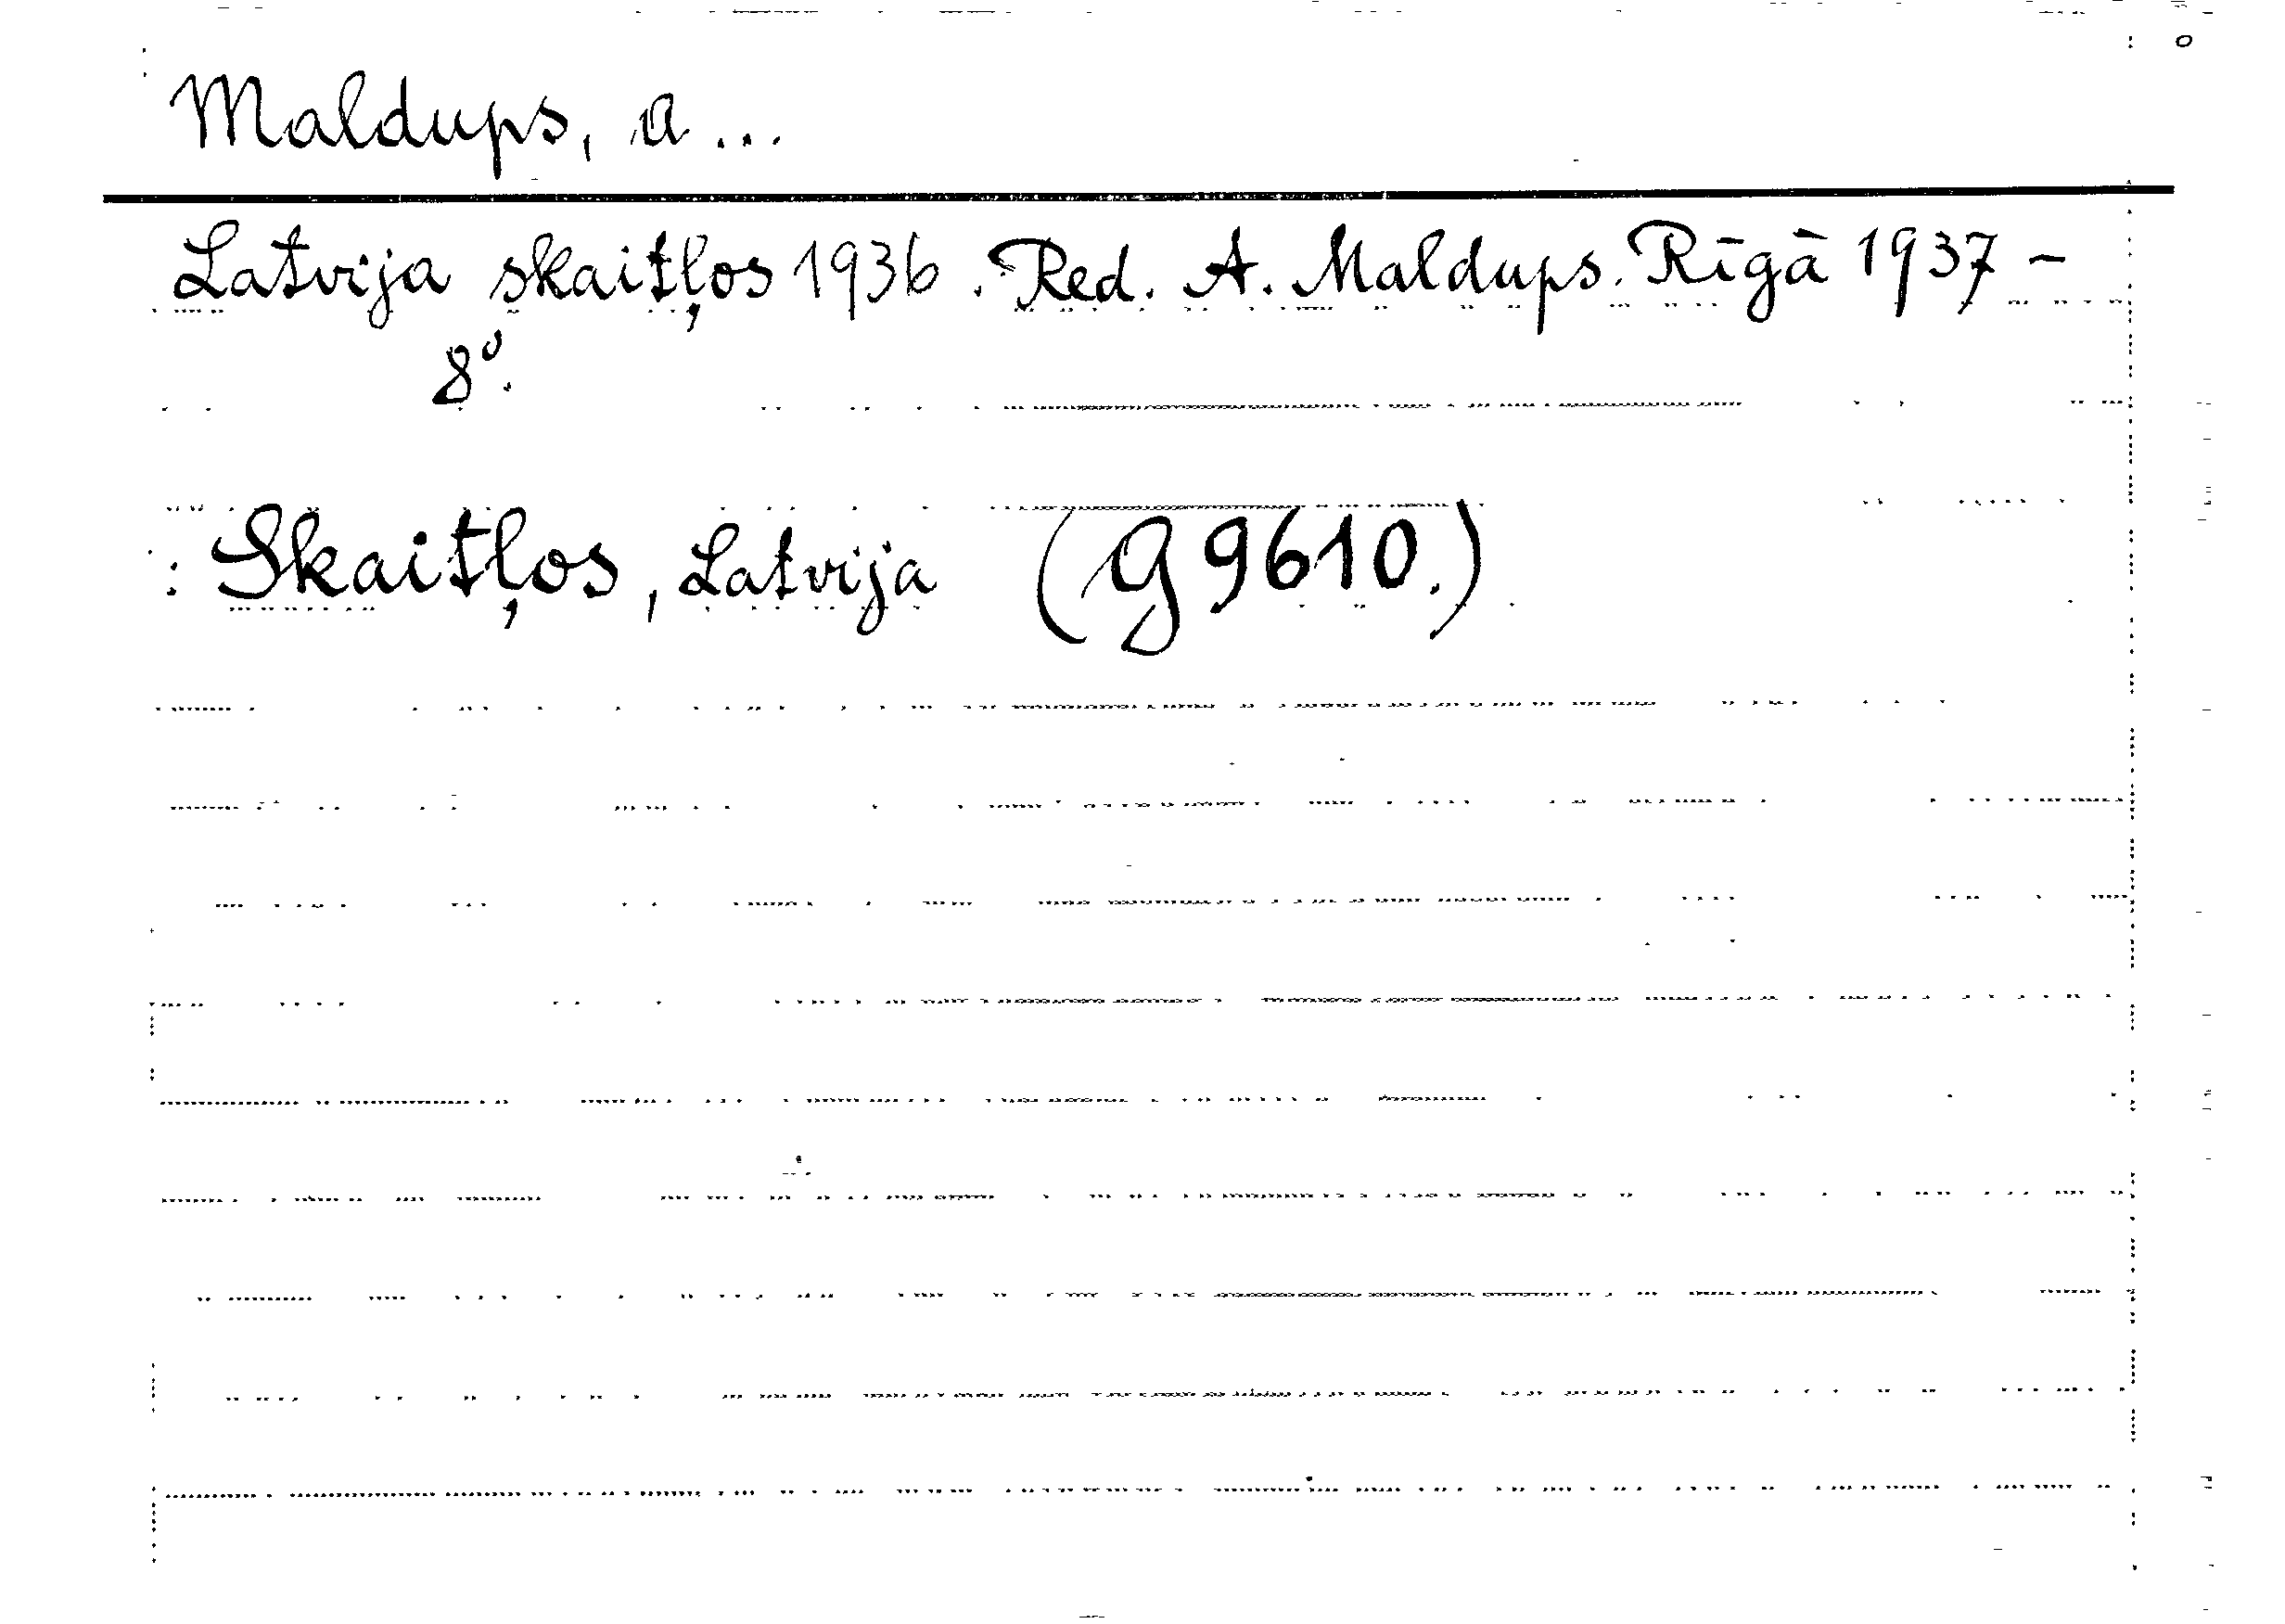 Maldups, A...
Latvija skaitļos 1936. Red. A. Maldups. Rīgā 1937 -
8º.
Skaitļos, Latvija (G 9610.)